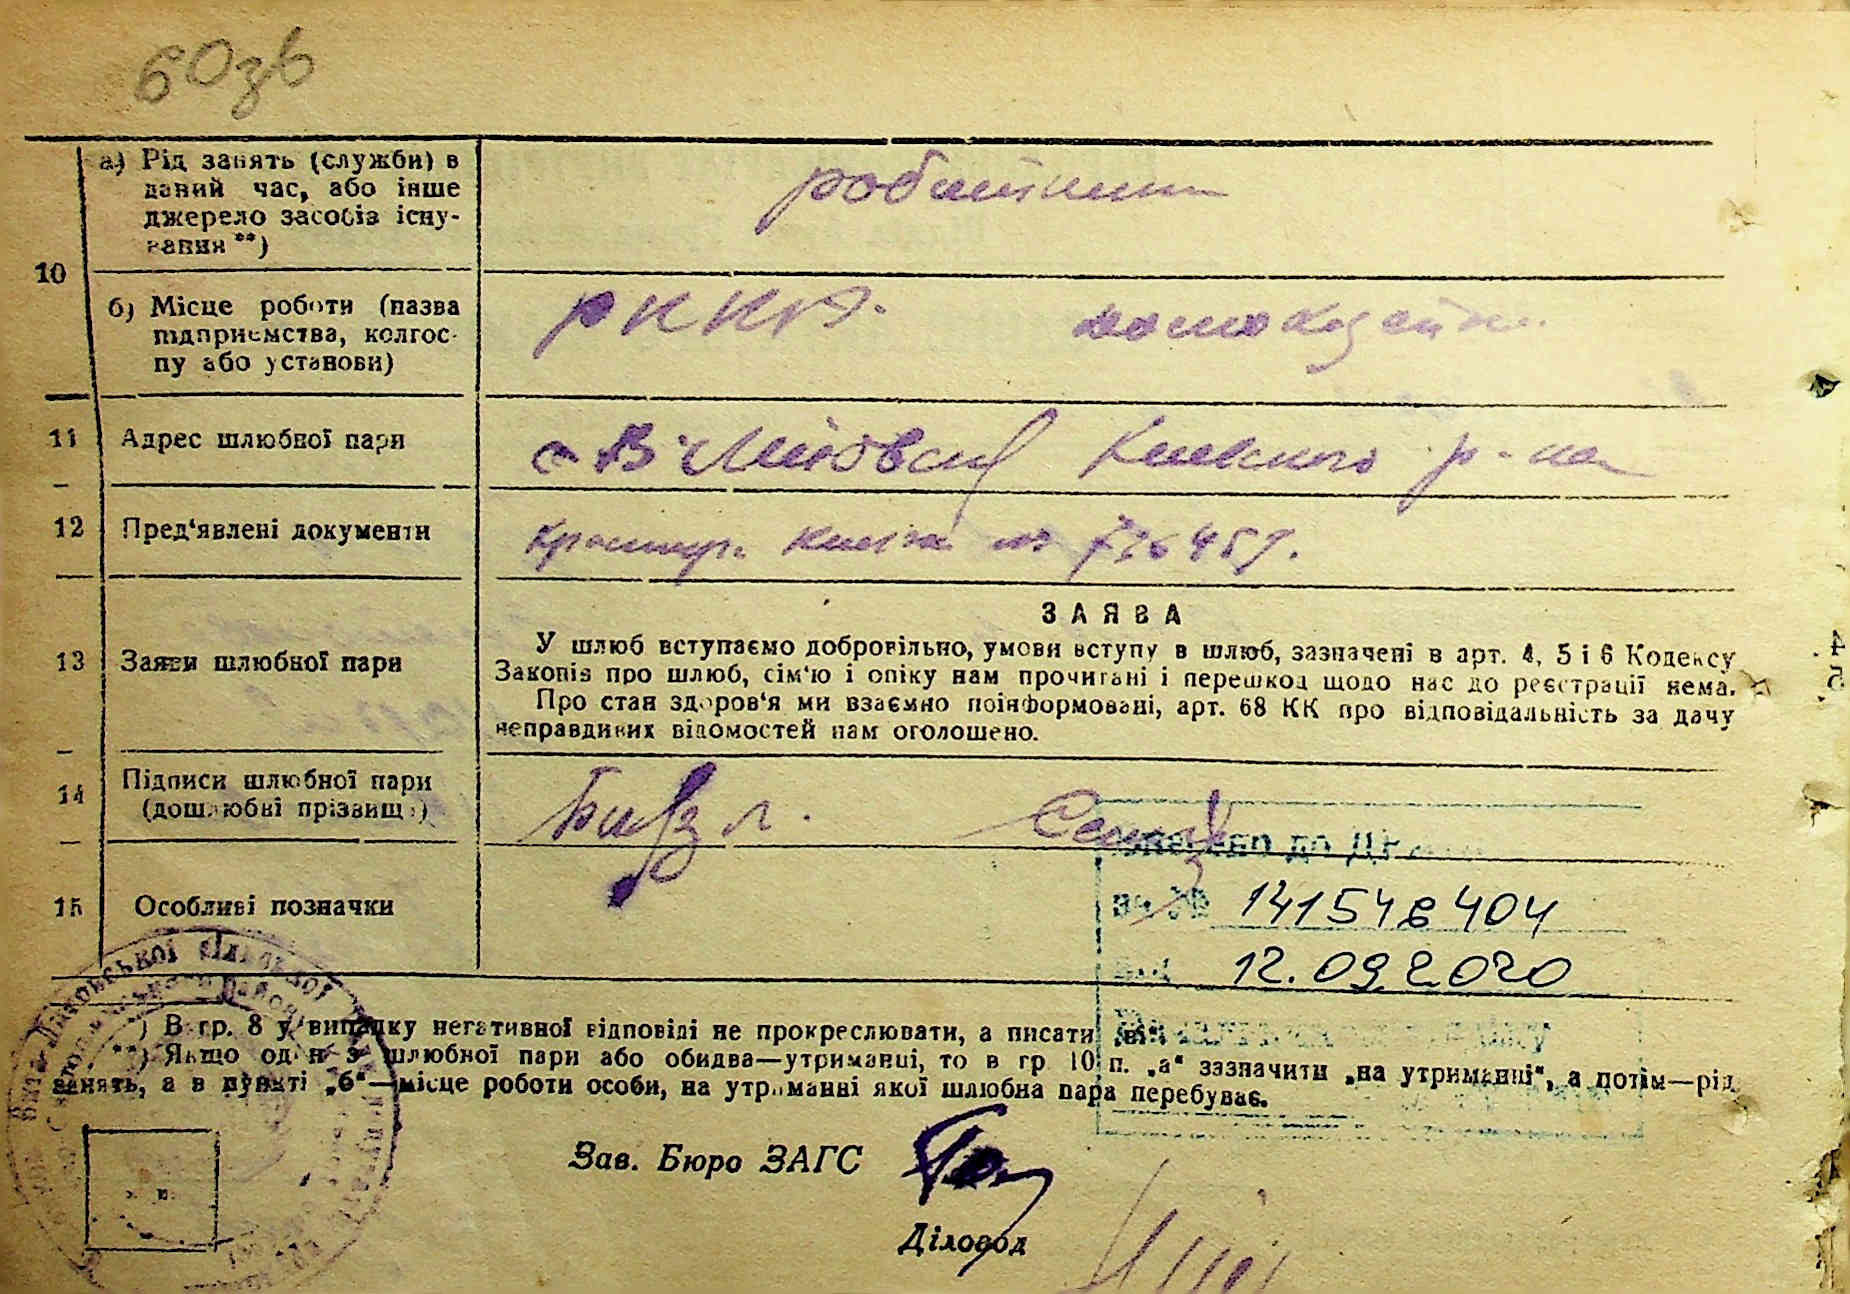 60зв
10
а) Рід занять (служби) в
даний час, або інше
джерело засобів існу-
вання **)
робітник
б) Місце роботи (назва
підприємства, колгос-
пу або установи)
РККА.
домохазяйка
11
Адрес шлюбної пари
с. В-Литовськ Киевского р-на
12
Пред‘явлені документи
13
Заяви шлюбної пари
ЗАЯВА
У шлюб вступаємо добровільно, умови вступу в шлюб, зазначені в арт. 4, 5 і 6 Кодексу
Законів про шлюб, сім‘ю і опіку нам прочитані і перешкод щодо нас до реєстрації нема.
Про стан здоров‘я ми взаємно поінформовані, арт. 68 КК про відповідальність за дачу
неправдивих відомостей нам оголошено.
14
Підписи шлюбної пари
(дошлюбні прізвища)
15
Особливі позначки
до
141548404
12.09.2020
*) В гр. 8 у випадку негативної відповіді не прокреслювати, а писати „ні“
**) Якщо один з шлюбної пари або обидва—утриманці, то в гр 10 п. „а“ зазначити „на утриманні“, а потім—рід
занять, а в пункті „б“—місце роботи особи, на утриманні якої шлюбна пара перебуває.
Зав. Бюро ЗАГС
Діловод